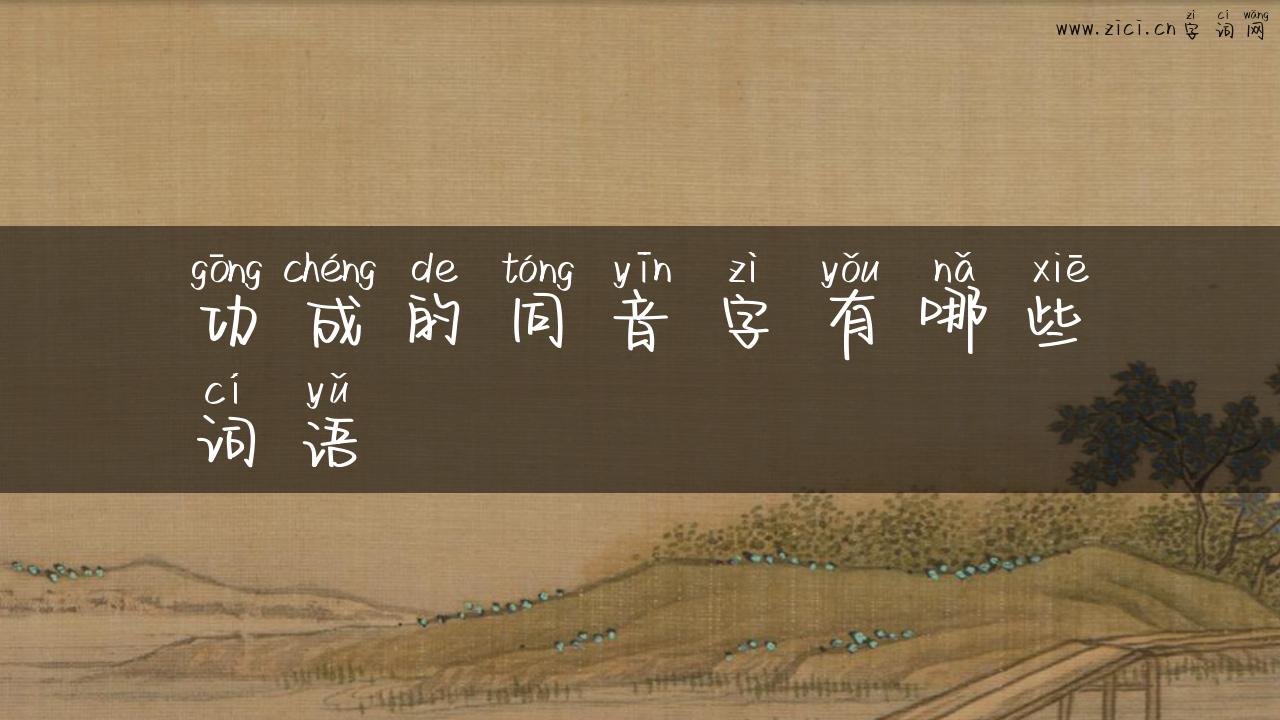 zì cí wǎng
www.zici.cn字词网
gōng chéng de tóng yīn zì yǒu nǎ xiē
功成的同音字有哪些
cí yǔ
词语